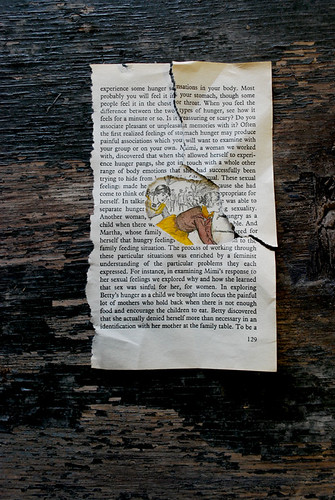 experience some hunger sensations in your body. Most
probably you will feel it in your stomach, though some
people feel it in the chest or throat. When you feel the
difference between the two types of hunger, see how it
feels for a minute or so. Is it reassuring or scary? Do you
associate pleasant or unpleasant memories with it? Often
the first realized feelings of stomach hunger may produce
painful associations which you will want to examine with
your group or on your own. Mimi, a woman we worked
with, discovered that when she allowed herself to experi-
ence hunger pangs, she got in touch with a whole other
range of body emotions that she had successfully been
trying to hide from These sexual
feelings made he cause she had
come to think of propriate for
herself. In talki was able to
separate hunger sexuality.
Another woman, ngry as a
child when there w le. And
Martha, whose family red for
herself that hunger feelings to the
family feeding situation. The process of working through
these particular situations was enriched by a feminist
understanding of the particular problems they each
expressed. For instance, in examining Mimi's response to
her sexual feelings we explored why and how she learned
that sex was sinful for her, for women. In exploring
Betty's hunger as a child we brought into focus the painful
lot of mothers who hold back when there is not enough
food and encourage the children to eat. Betty discovered
that she actually denied herself more than necessary in an
identification with her mother at the family table. To be a
129